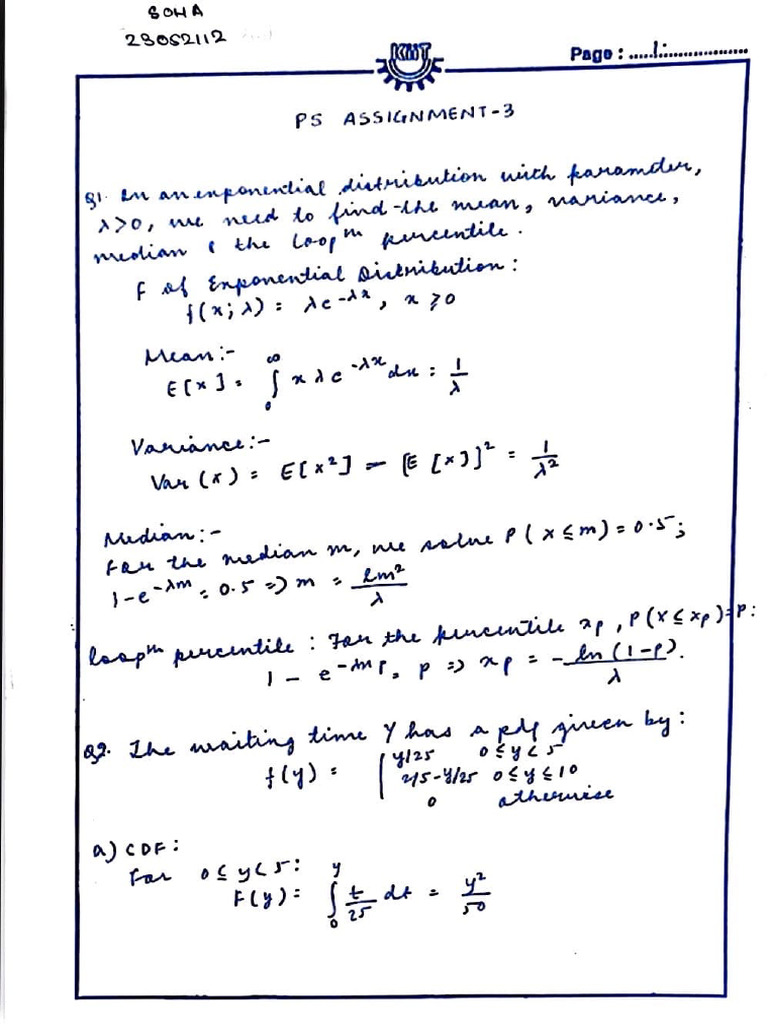 SOHA
23052112
KIIT
Page : .....1.................
PS ASSIGNMENT-3
Q1. In an exponential distribution with paramder,
λ>0, we need to find the mean, variance,
median & the 100pth percentile.
F of Exponential Distribution:
f(x; λ) = λe^-λx, x ≥ 0
Mean:-
E[x] = ∫₀^∞ x λe^-λx dx = 1/λ
Variance:-
Var (x) = E[x²] – [E [x]]² = 1/λ²
Median:-
For the median m, we solve P(x ≤ m) = 0.5;
1-e^-λm = 0.5 => m = lm²/λ
100pth percentile : For the percentile xp, P(x ≤ xp)=P:
1 - e^-λxp = p => xp = -ln(1-p)/λ.
Q2. The waiting time Y has a pdf given by:
f(y) = | y/25 0≤y<5
2/5-y/25 0≤y≤10
0 otherwise
a) CDF:
For 0≤y<5:
F(y) = ∫₀^y t/25 dt = y²/50